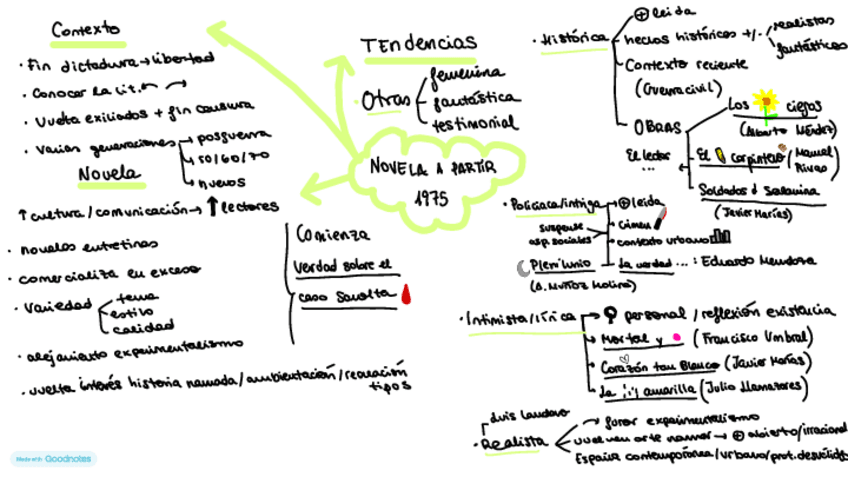 Contexto
· Fin dictadura → libertad
· Conocer la lit.
· Vuelta exiliados + fin censura
· Varias generaciones → posguerra
→ 50/60/70
→ nuevos
Novela
↑ cultura/comunicación → ↑ lectores
· novelas entretienen
· comercializa en exceso
· variedad
tema
estilo
calidad
· alejamiento experimentalismo
· vuelta interés historia narrada/ambientación/recreación
tipos
Comienza
Verdad sobre el
caso Savolta
TENdencias
· Otras
femenina
fantástica
testimonial
NOVELA A PARTIR
1975
· Histórica
⊕ leida
hechos históricos +/-
realistas
fantásticos
Contexto reciente
(Guerra civil)
OBRAS
Los ciegos
(Alberto Méndez)
El lector
...
El carpintero (Manuel
Rivas)
Soldados d Salamina
(Javier Marías)
· Policiaca/intriga → ⊕ leida
suspense
asp. sociales
Crimen
contexto urbano
Plenilunio
(A. Muñoz Molina)
La verdad ... : Eduardo Mendoza
· Intimista/lírica → personal / reflexión existencia
Mortal y (Francisco Umbral)
Corazón tan Blanco (Javier Marías)
La amarilla (Julio Llamazares)
Luis Landero
· Realista
furor experimentalismo
vuelven arte narrar → ⊕ abierto/irracional
España contemporánea/urbano/prot. desvalido
Made with Goodnotes